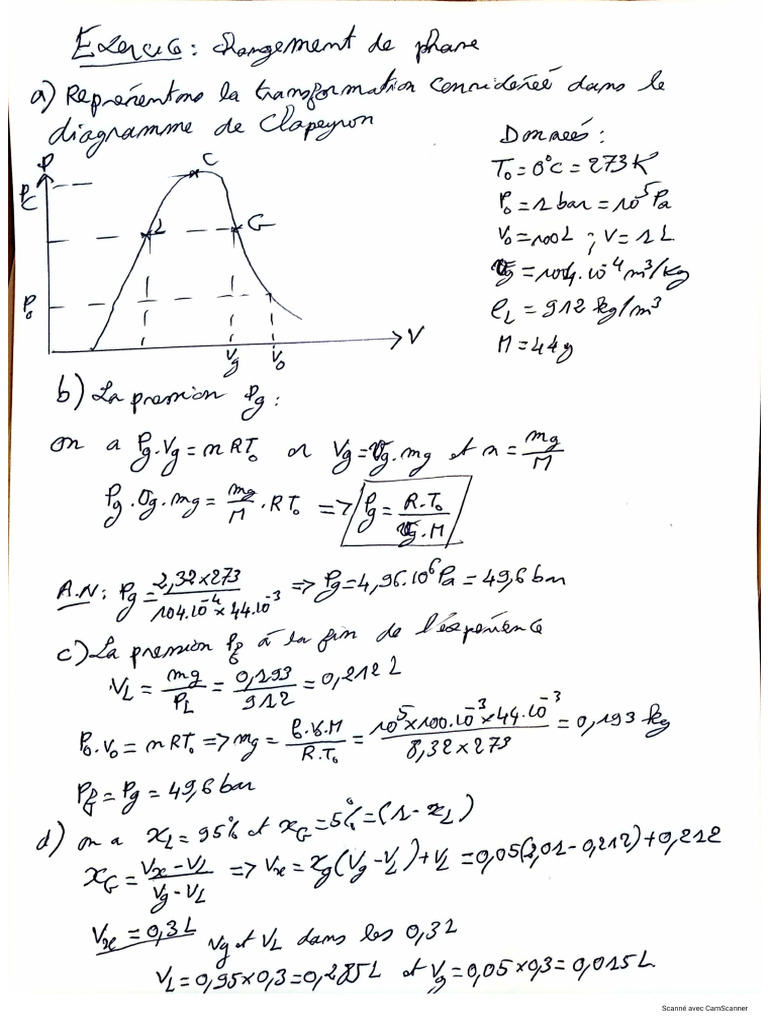 Exercice : changement de phase
a) Représentons la transformation considérée dans le
diagramme de Clapeyron
P
C
P_C
L
G
P_0
V_g
V_0
V
Données :
T_0 = 0°C = 273 K
P_0 = 1 bar = 10^5 Pa
V_0 = 100 L ; V = 1 L
v_g = 104.10^-4 m^3/kg
ρ_L = 912 kg/m^3
M = 44 g
b) La pression P_g :
on a P_g.V_g = nRT_0 or V_g = v_g.m_g et n = m_g/M
P_g.v_g.m_g = m_g/M . RT_0 => P_g = R.T_0/v_g.M
A.N : P_g = 2,32×273/104.10^-4×44.10^-3 => P_g = 4,96.10^6 Pa = 49,6 bar
c) La pression P_f à la fin de l'expérience
V_L = m_g/ρ_L = 0,193/912 = 0,212 L
P_0.V_0 = nRT_0 => m_g = P_0.V_0.M/R.T_0 = 10^5×100.10^-3×44.10^-3/8,32×273 = 0,193 kg
P_f = P_g = 49,6 bar
d) on a x_L = 95% et x_G = 5% = (1 - x_L)
x_G = V_x - V_L/V_g - V_L => V_x = x_g(V_g - V_L) + V_L = 0,05(2,01 - 0,212) + 0,212
V_x = 0,3 L V_g et V_L dans les 0,3 L
V_L = 0,95×0,3 = 0,285 L et V_g = 0,05×0,3 = 0,015 L.
Scanné avec CamScanner